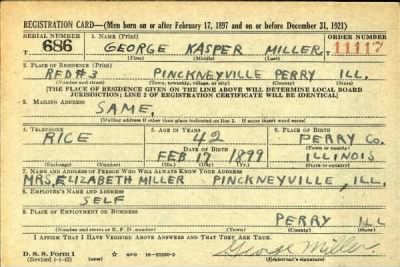 REGISTRATION CARD—(Men born on or after February 17, 1897 and on or before December 31, 1921)
SERIAL NUMBER 1. NAME (Print) ORDER NUMBER
686 GEORGE KASPER MILLER 11117
(First) (Middle) (Last)
2. PLACE OF RESIDENCE (Print)
RFD#3 PINCKNEYVILLE PERRY ILL.
(Number and street) (Town, township, village, or city) (County) (State)
[THE PLACE OF RESIDENCE GIVEN ON THE LINE ABOVE WILL DETERMINE LOCAL BOARD
JURISDICTION; LINE 2 OF REGISTRATION CERTIFICATE WILL BE IDENTICAL]
3. MAILING ADDRESS
SAME.
[Mailing address if other than place indicated on line 2. If same insert word same]
4. TELEPHONE 5. AGE IN YEARS 6. PLACE OF BIRTH
RICE 42 PERRY CO.
DATE OF BIRTH (Town or county)
FEB 17 1899 ILLINOIS
(Exchange) (Number) (Mo.) (Day) (Yr.) (State or country)
7. NAME AND ADDRESS OF PERSON WHO WILL ALWAYS KNOW YOUR ADDRESS
MRS, ELIZABETH MILLER PINCKNEYVILLE, ILL.
8. EMPLOYER'S NAME AND ADDRESS
SELF
9. PLACE OF EMPLOYMENT OR BUSINESS
PERRY ILL
(Number and street or R. F. D. number) (Town) (County) (State)
I AFFIRM THAT I HAVE VERIFIED ABOVE ANSWERS AND THAT THEY ARE TRUE.
D. S. S. Form 1 GPO George Miller
(Registrant's signature)